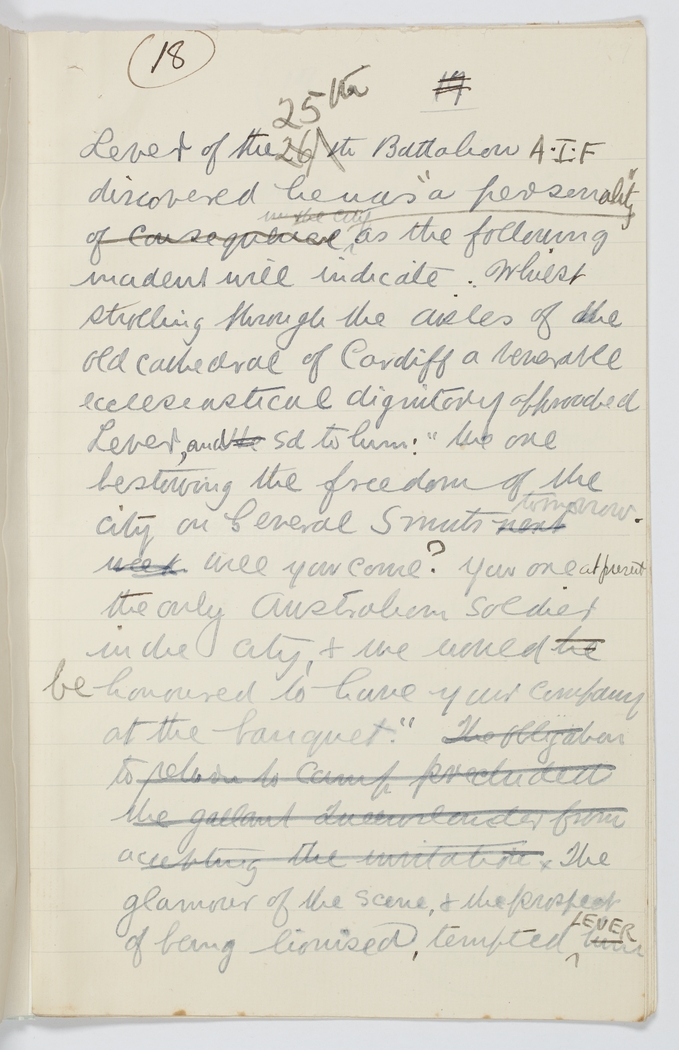 18
25th
Lever of the 26th Battalion A.I.F
discovered he was "a personality"
of consequence in the city as the following
incident will indicate. Whilst
strolling through the aisles of the
old cathedral of Cardiff a venerable
ecclesiastical dignitory approached
Lever, and the sd to him: "We are
bestowing the freedom of the
city on General Smuts next tomorrow.
week will you come? You are at present
the only Australian soldier
in the city, & we would be
be honoured to have your company
at the banquet." The obligation
to return to camp precluded
the gallant Queenslander from
accepting the invitation. The
glamour of the scene, & the prospect
of being lionised, tempted LEVER him